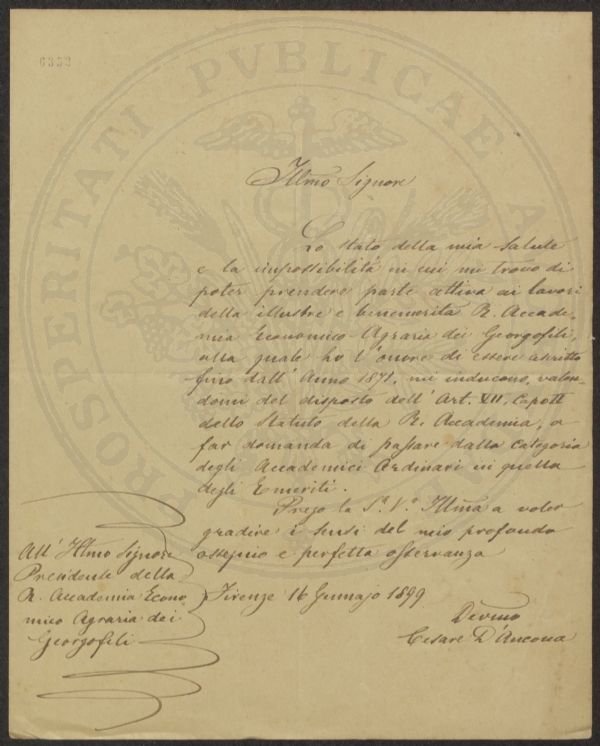 6352
PROSPERITATI PVBLICAE A
Illmo Signore
Lo stato della mia salute
e la impossibilità in cui mi trovo di
poter prendere parte attiva ai lavori
della illustre e benemerita R. Accade-
mia Economico-Agraria dei Georgofili,
alla quale ho l'onore di essere ascritto
fino dall'Anno 1871, mi inducono, valen-
domi del disposto dell'Art. VII,
dello Statuto della R. Accademia, a
far domanda di passare dalla categoria
degli Accademici Ordinari in quella
degli Emeriti.
Prego la S.a V.a Illma a voler
gradire i sensi del mio profondo
ossequio e perfetta osservanza
Firenze 16 Gennajo 1899
Devmo
Cesare D'Ancona
All' Illmo Signore
Presidente della
R. Accademia Econo
mico Agraria dei
Georgofili